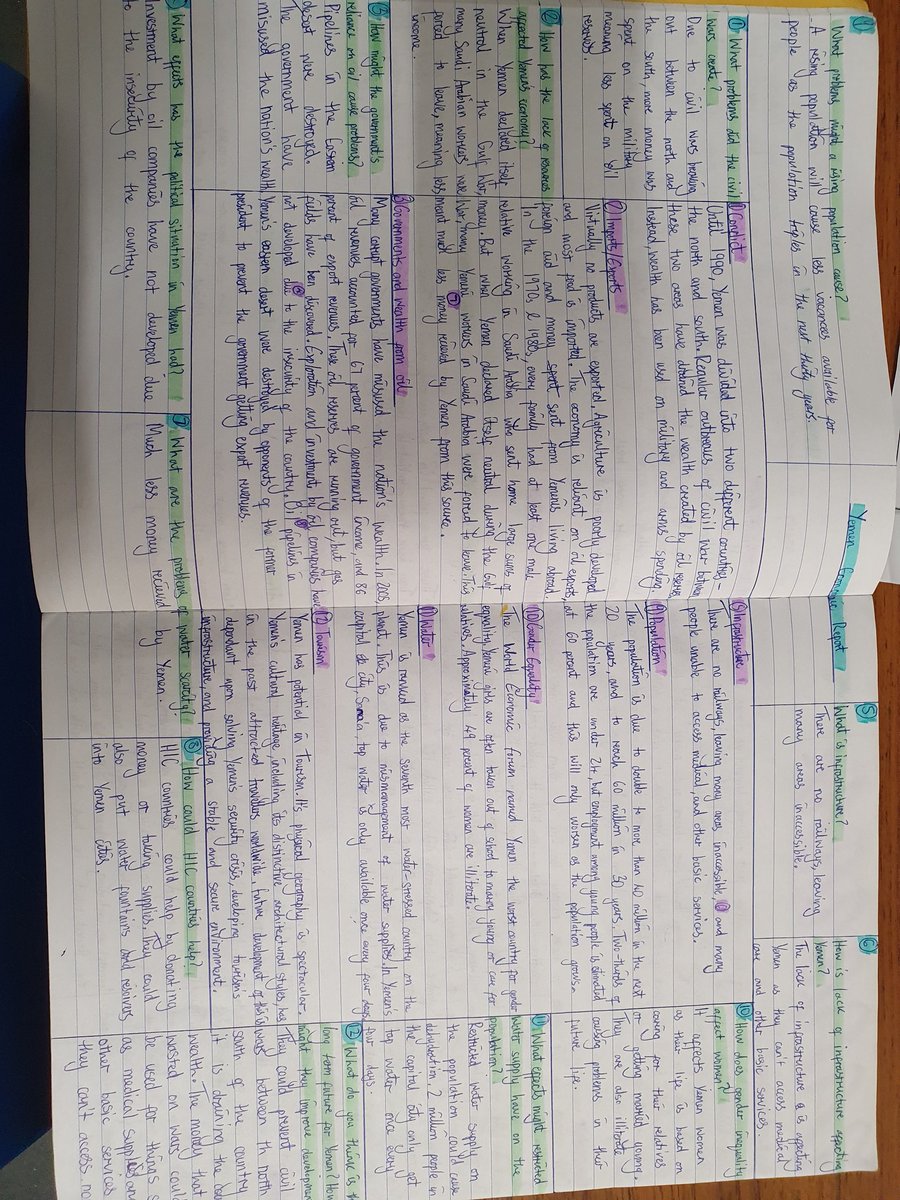 Yemen Economic Report
4) What problems might a rising population cause?
- A rising population will cause less vacancies available for
people as the population triples in the next thirty years.
5)
What is infrastructure?
There are no railways, leaving
many areas inaccessible.
6)
How is lack of infrastructure affecting
Yemen?
The lack of infrastructure is affecting
Yemen as they can't access medical
care and other basic services.
1) What problems did the civil
wars create?
Due to civil wars breaking
out between the north and
the south, more money was
spent on the military
meaning less spent on oil
reserves.
2) How has the lack of revenues
affected Yemen's economy?
When Yemen declared itself
neutral in the Gulf War,
many Saudi Arabian workers were
forced to leave, meaning less
income.
3) How might the government's
reliance on oil cause problems?
Pipelines in the Eastern
desert were destroyed.
The government have
misused the nation's wealth
1) Conflict
Until 1990, Yemen was divided into two different countries -
the north and south. Regular outbreaks of civil war between
these two areas have drained the wealth created by oil reserves.
Instead, wealth has been used on military and arms spending.
2) Imports/Exports
Virtually no products are exported. Agriculture is poorly developed
and most food is imported. The economy is reliant on oil exports,
foreign aid and money sent from Yemenis living abroad.
In the 1970s & 1980s, every family had at least one male
relative working in Saudi Arabia who sent home large sums of
money. But when Yemen declared itself neutral during the Gulf
War, many Yemeni workers in Saudi Arabia were forced to leave. This
meant much less money recieved by Yemen from this source.
3) Governments and wealth from oil
Many corrupt governments have misused the nation's wealth. In 2005,
oil revenues accounted for 67 percent of government income, and 86
percent of export revenues. These oil reserves are running out, but gas
fields have been discovered. Exploration and investment by oil companies have
not developed due to the insecurity of the country. Oil pipelines in
Yemen's eastern desert were destroyed by opponents of the former
president to prevent the government getting export revenues.
5) Infrastructure
There are no railways, leaving many areas inaccessible, and many
people unable to access medical, and other basic services.
9) Population
The population is due to double to more than 40 million in the next
20 years, and to reach 60 million in 30 years. Two-thirds of
the population are under 24, but employment among young people is estimated
at 60 percent and this will only worsen as the population grows.
10) Gender Equality
The World Economic forum named Yemen the worst country for gender
equality. Yemeni girls are often taken out of school to marry young or care for
relatives. Approximately 49 percent of women are illiterate.
11) Water
Yemen is ranked as the seventh most water-stressed country on the
planet. This is due to mismanagement of water supplies. In Yemen's
capital city, Sana'a, tap water is only available once every four days.
12) Tourism
Yemen has potential in Tourism. It's physical geography is spectacular.
Yemen's cultural heritage, including its distinctive architectural styles, has
in the past attracted travellers worldwide. Future development of this is
dependant upon solving Yemen's security crisis, developing tourism's
infrastructure, and providing a stable and secure environment.
10) How does gender inequality
affect women?
It affects Yemen women
as their life is based on
caring for their relatives
or getting married young.
They are also illiterate
causing problems in their
future life.
11) What effects might restricted
water supply have on the
population?
Restricted water supply on
the population could cause
dehydration. 2 million people in
the capital city only get
tap water once every
four days
12) What do you think is the
long term future for Yemen? How
might they improve development
They could prevent civil
wars between the north
south of the country
it is draining the
wealth. The money that
wasted on wars could
be used for things
as medical supplies and
other basic services
they can't access
What effects has the political situation in Yemen had?
Investment by oil companies have not developed due
to the insecurity of the country.
7) What are the problems of water scarcity?
Much less money recieved
by Yemen.
8) How could HIC countries help?
HIC countries could help by donating
money or taking supplies. They could
also put water fountains and
into Yemen cities.